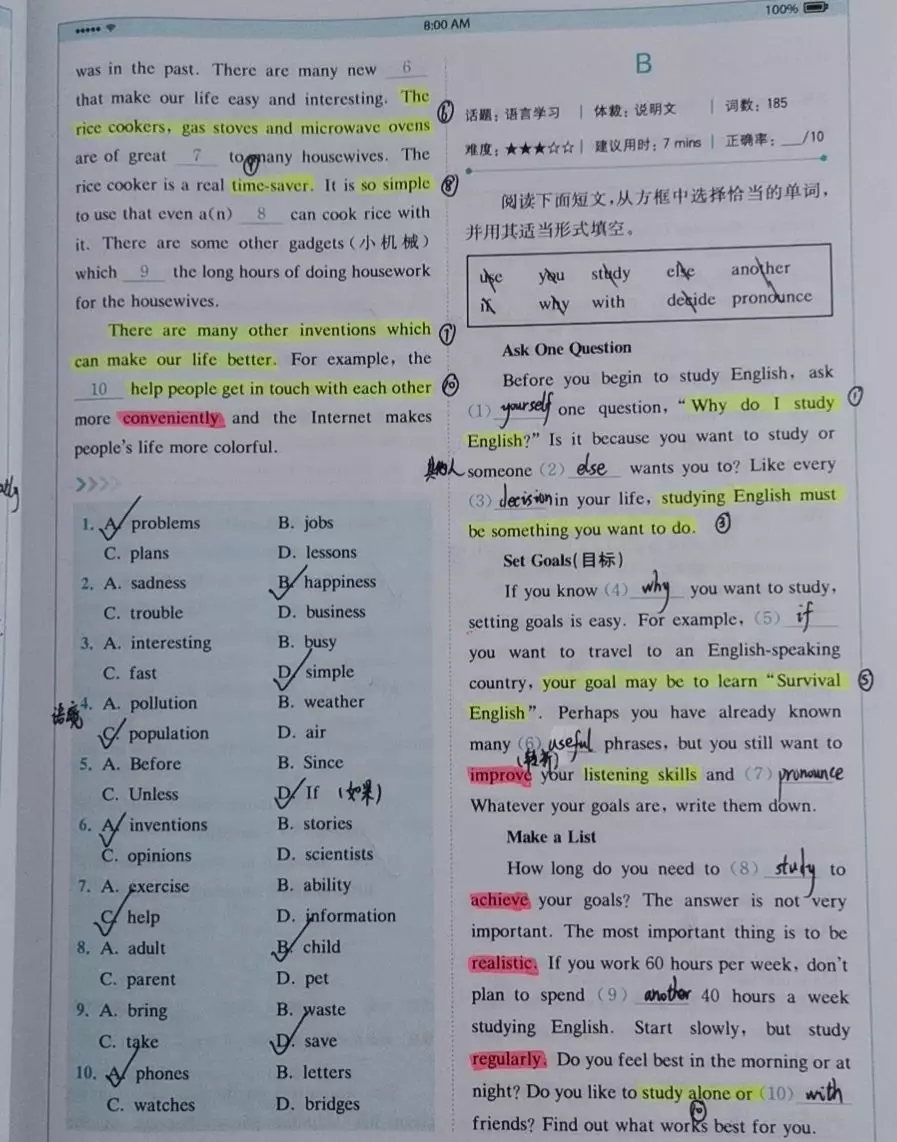 8:00 AM
100%
was in the past. There are many new 6
that make our life easy and interesting. The
rice cookers, gas stoves and microwave ovens
are of great 7 to many housewives. The
rice cooker is a real time-saver. It is so simple
to use that even a(n) 8 can cook rice with
it. There are some other gadgets(小机械)
which 9 the long hours of doing housework
for the housewives.
There are many other inventions which
can make our life better. For example, the
10 help people get in touch with each other
more conveniently and the Internet makes
people's life more colorful.
1. A. problems B. jobs
C. plans D. lessons
2. A. sadness B. happiness
C. trouble D. business
3. A. interesting B. busy
C. fast D. simple
语境
4. A. pollution B. weather
C. population D. air
5. A. Before B. Since
C. Unless D. If (如果)
6. A. inventions B. stories
C. opinions D. scientists
7. A. exercise B. ability
C. help D. information
8. A. adult B. child
C. parent D. pet
9. A. bring B. waste
C. take D. save
10. A. phones B. letters
C. watches D. bridges
B
话题:语言学习 | 体裁:说明文 | 词数:185
难度:★★★☆☆ | 建议用时:7 mins | 正确率:__/10
阅读下面短文,从方框中选择恰当的单词,
并用其适当形式填空。
use you study else another
if why with decide pronounce
Ask One Question
Before you begin to study English, ask
(1) yourself one question, “Why do I study ①
English?” Is it because you want to study or
其他人 someone (2) else wants you to? Like every
(3) decision in your life, studying English must
be something you want to do. ③
Set Goals(目标)
If you know (4) why you want to study,
setting goals is easy. For example, (5) if
you want to travel to an English-speaking
country, your goal may be to learn “Survival ⑤
English”. Perhaps you have already known
many (6) useful phrases, but you still want to
improve your listening skills and (7) pronounce
Whatever your goals are, write them down.
Make a List
How long do you need to (8) study to
achieve your goals? The answer is not very
important. The most important thing is to be
realistic. If you work 60 hours per week, don't
plan to spend (9) another 40 hours a week
studying English. Start slowly, but study
regularly. Do you feel best in the morning or at
night? Do you like to study alone or (10) with
friends? Find out what works best for you.